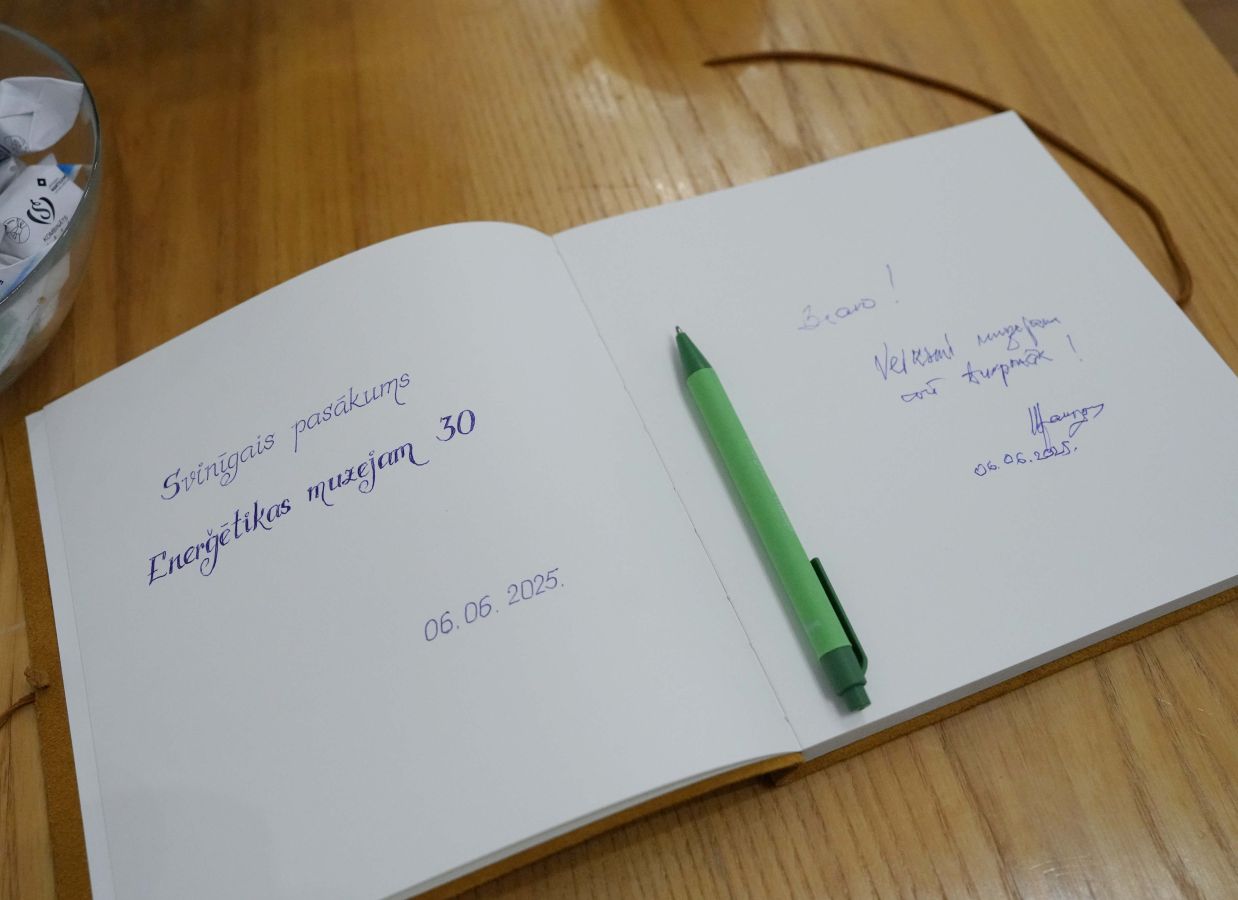 Svinīgais pasākums
Enerģētikas muzejam 30
06.06.2025.
Bravo!
Veiksmi muzejam
arī turpmāk!
06.06.2025.
KOMBINĀTS